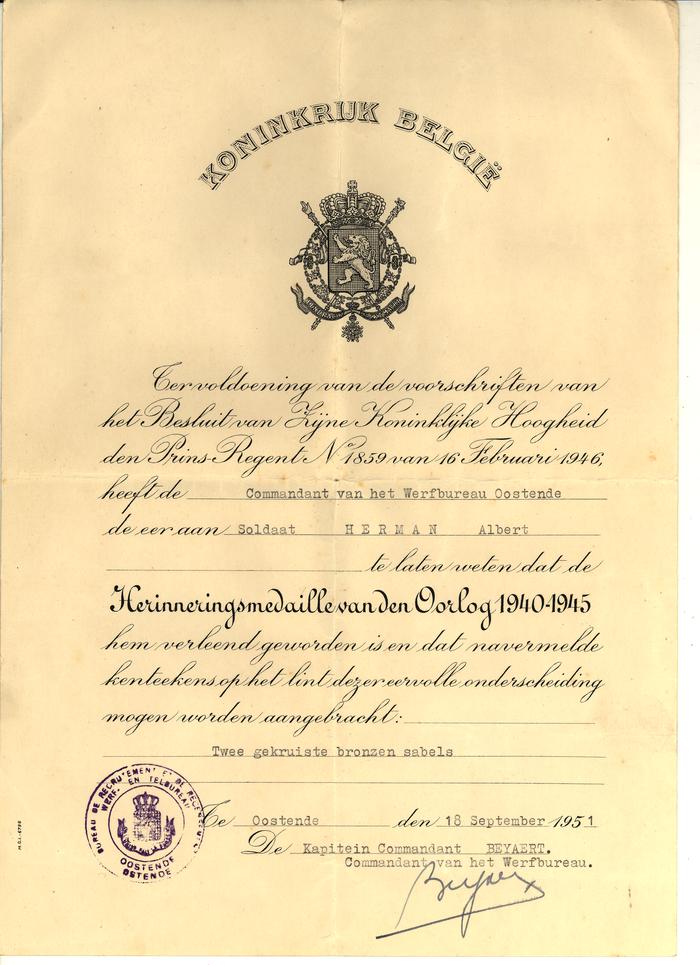 KONINKRIJK BELGIË
Ter voldoening van de voorschriften van
het Besluit van Zijne Koninklijke Hoogheid
den Prins-Regent No 1859 van 16 Februari 1946,
heeft de Commandant van het Werfbureau Oostende
de eer aan Soldaat HERMAN Albert
te laten weten dat de
Herinneringsmedaille van den Oorlog 1940-1945
hem verleend geworden is en dat navermelde
kenteekens op het lint dezer eervolle onderscheiding
mogen worden aangebracht:
Twee gekruiste bronzen sabels
BUREAU DE RECRUTEMENT ET DE
WERF- EN TELBUREAU
OOSTENDE
OSTENDE
Te Oostende den 18 September 1951
De Kapitein Commandant BEYAERT.
Commandant van het Werfbureau.